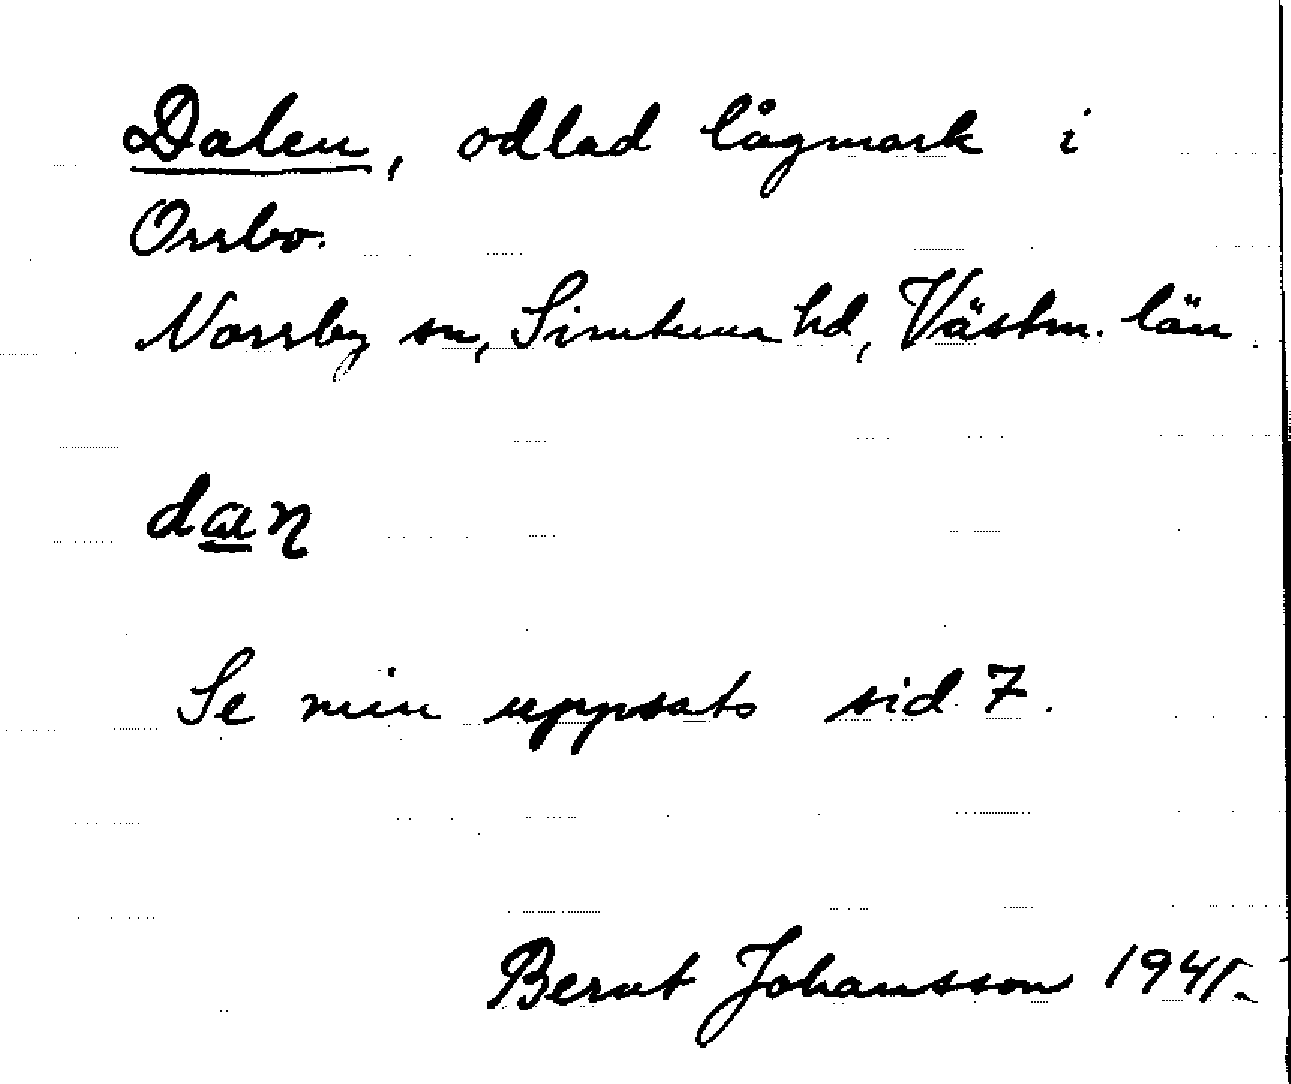 Dalen, odlad lågmark i
Orrbo.
Norrby sn, Simtuna hd, Västm. län
dan
Se min uppsats sid. 7.
Bernt Johansson